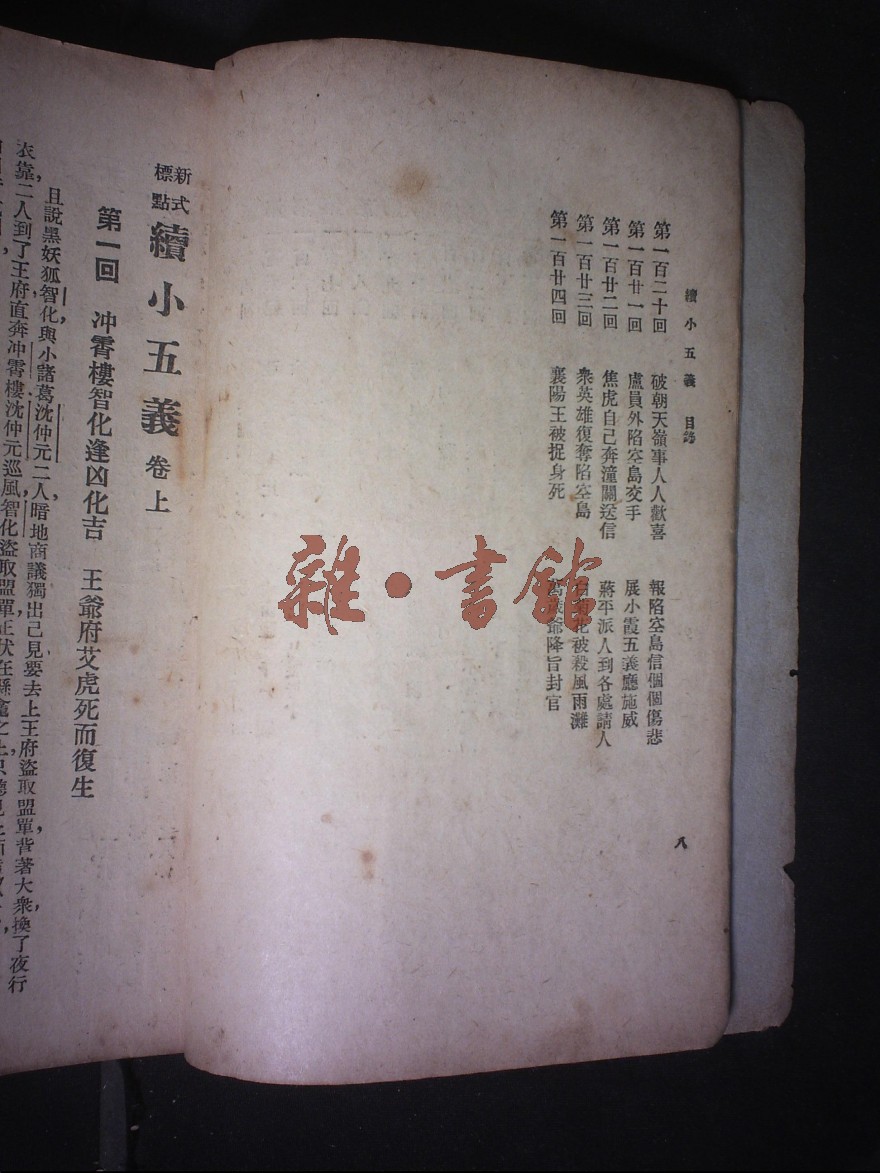 續小五義 目錄
第一百二十回 破朝天嶺事人人歡喜 報陷空島信個個傷悲
第一百廿一回 盧員外陷空島交手 展小霞五義廳施威
第一百廿二回 焦虎自己奔潼關送信 蔣平派人到各處請人
第一百廿三回 衆英雄復奪陷空島 白菊花被殺風雨灘
第一百廿四回 襄陽王被捉身死 萬歲爺降旨封官
八
雜·書館
新式標點
續小五義 卷上
第一回 冲霄樓智化逢凶化吉 王爺府艾虎死而復生
且說黑妖狐智化,與小諸葛沈仲元二人,暗地商議,獨出己見,要去上王府盜取盟單,背著大衆,換了夜行
衣靠,二人到了王府,直奔冲霄樓,沈仲元巡風,智化盜取盟單,正伏在懸龕之上,